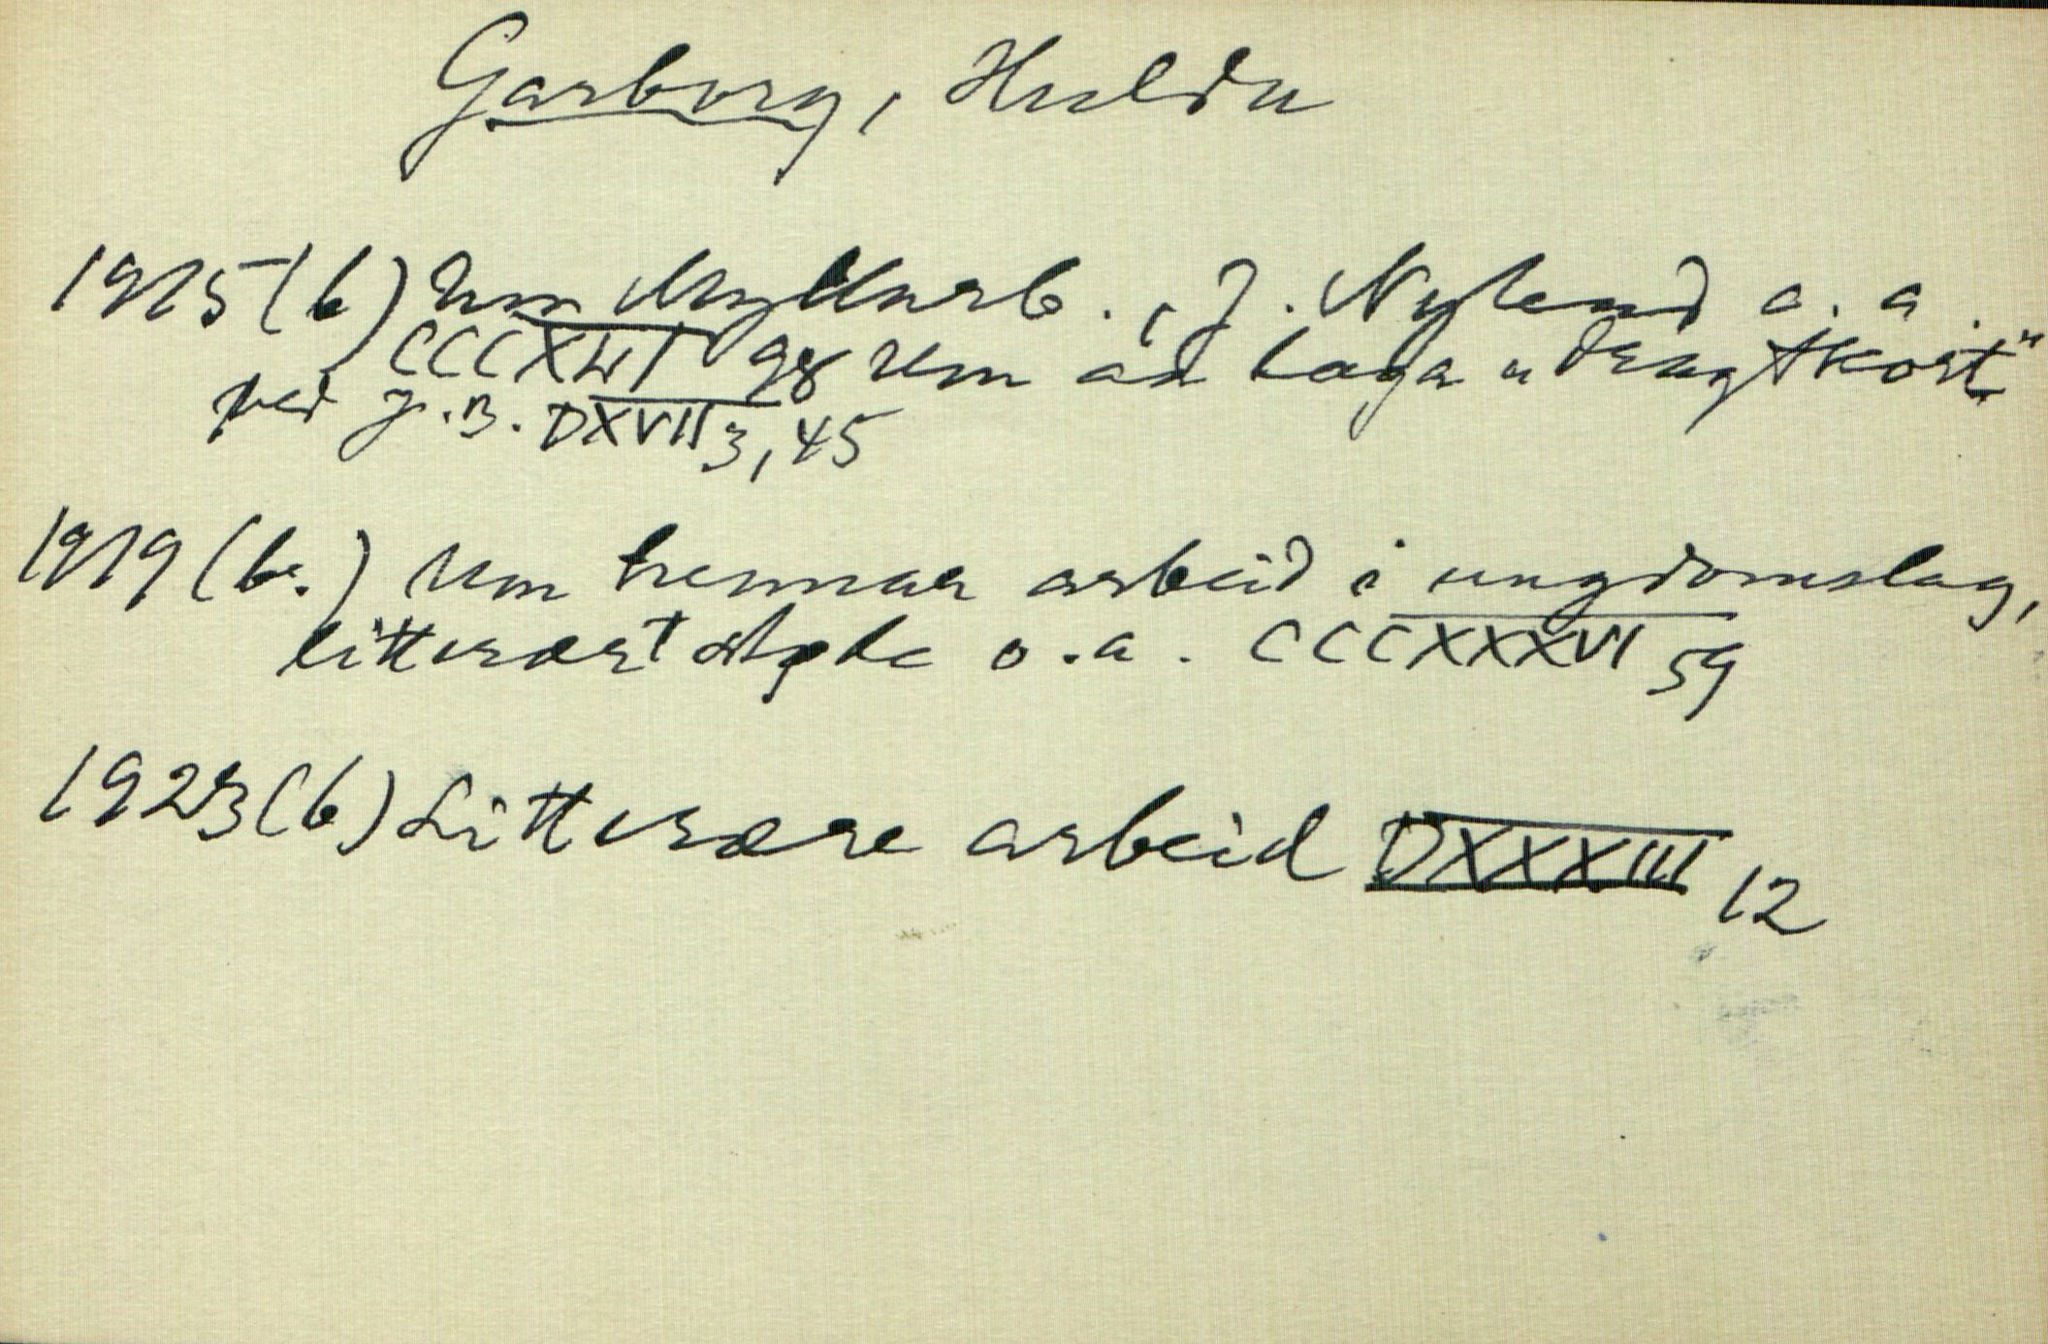 Garborg, Hulda
1915 (b) Um J. Nyland o. a.
98 Um aa laga "Dragtkort"
ved J.B. DXVII 3, 45
1919 (b.) Um hennar arbeid i ungdomslag,
litterært o.a. CCCXXXVI 59
1923 (b) Litterære arbeid DXXXIII 12